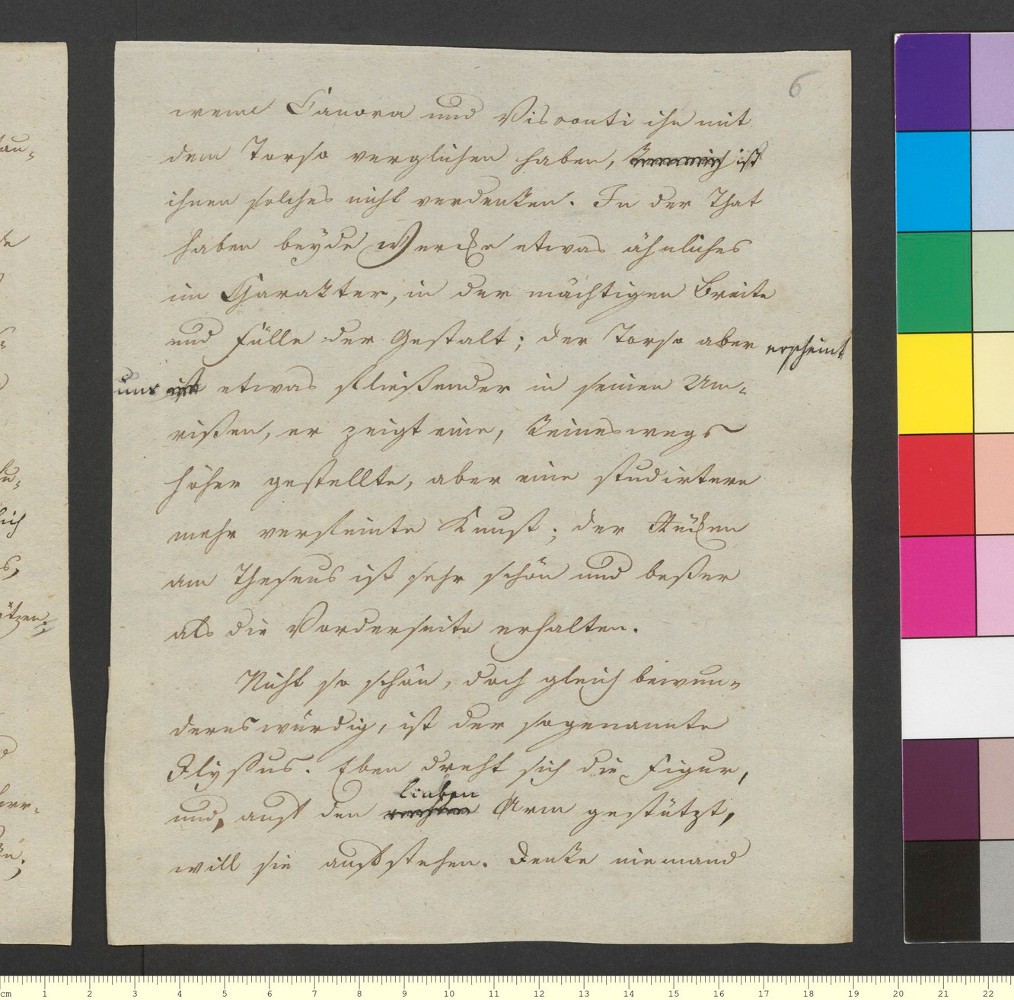 6
wenn Canova und Visconti ihn mit
dem Torso verglichen haben, ist
ihnen solches nicht verdenken. In der That
haben beyde Wercke etwas ähnliches
im Charakter, in der mächtigen Breite
und Fülle der Gestalt; der Torso aber erscheint
uns etwas fließender in seinen Um-
rißen, er zeigt eine, keineswegs
höher gestellte, aber eine studirtere
mehr verfeinte Kunst; der Rücken
am Theseus ist sehr schön und beßer
als die Vorderseite erhalten.
Nicht so schön, doch gleich bewun-
dernswürdig, ist der sogenannte
Ilyssus. Eben dreht sich die Figur,
und, auf den linken Arm gestützt,
will sie aufstehen. Denke niemand